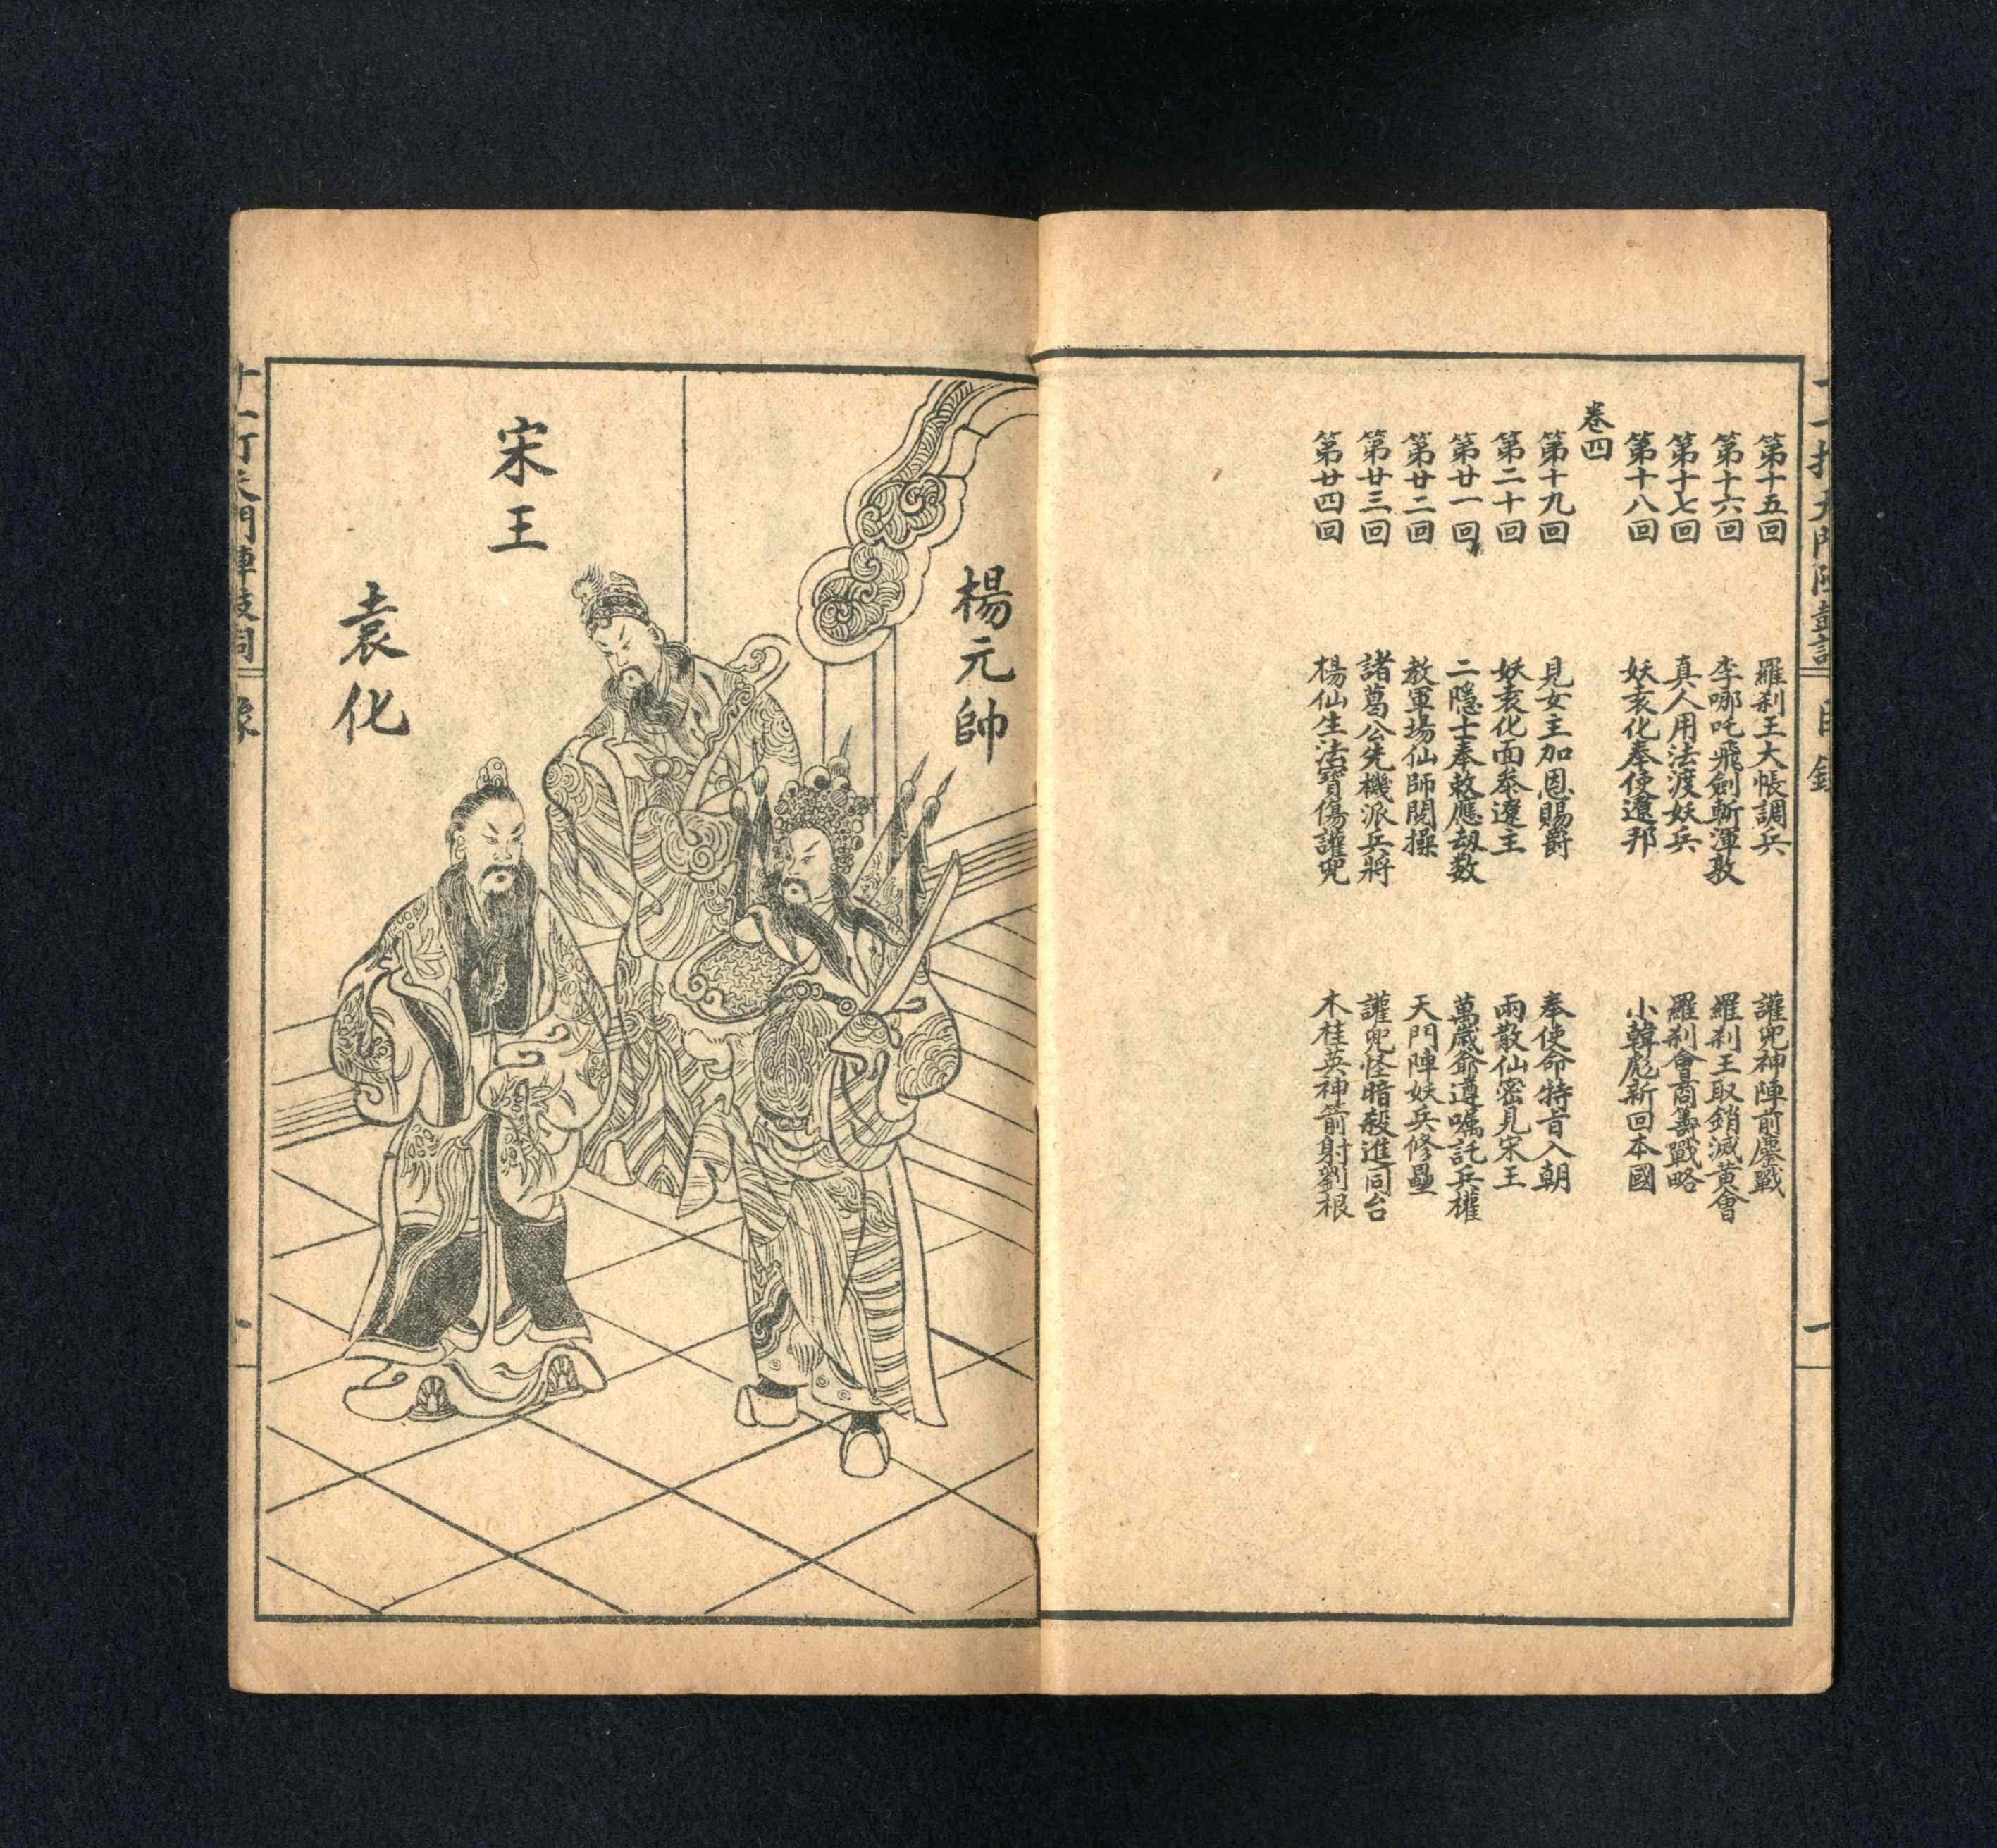 第十五回 羅刹王大帳調兵 讙兜神陣前鏖戰
第十六回 李哪吒飛劍斬渾敦 羅刹王取銷滅黃會
第十七回 真人用法渡妖兵 羅刹會商籌戰略
第十八回 妖袁化奉使遼邦 小韓彪新回本國
卷四
第十九回 見女主加恩賜爵 奉使命特旨入朝
第二十回 妖袁化面叅遼主 兩散仙密見宋王
第廿一回 二隱士奉敕應劫数 萬歲爺遵囑託兵權
第廿二回 教軍場仙師閱操 天門陣妖兵修壘
第廿三回 諸葛公先機派兵將 讙兜怪暗殺進同台
第廿四回 楊仙生法寶傷讙兜 木桂英神箭射劉根
目錄
一
楊元帥
宋王
袁化
像